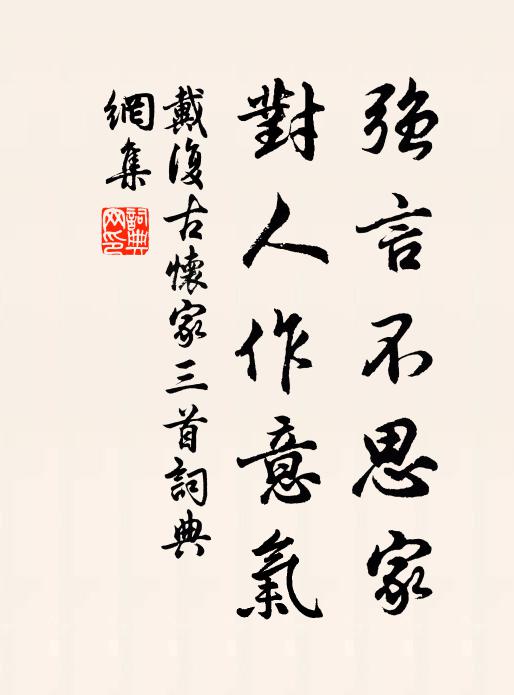 強言不思家
對人作意氣
戴復古懷家三首詞典
網集
詞典網印